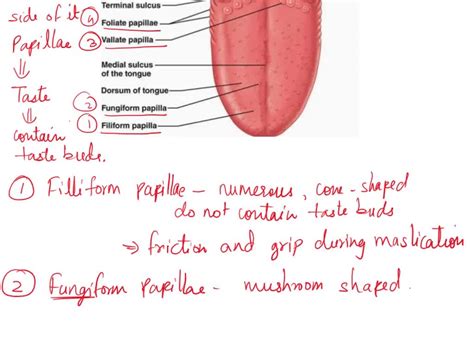 side of it ④ Terminal sulcus
Foliate papillae
Papillae ③ Vallate papilla
⇓
Medial sulcus
of the tongue
Taste
Dorsum of tongue
⇓
② Fungiform papilla
contain ① Filiform papilla
taste buds.
① Filliform papillae – numerous, cone-shaped
do not contain taste buds
⇒ friction and grip during mastication
② Fungiform papillae – mushroom shaped.